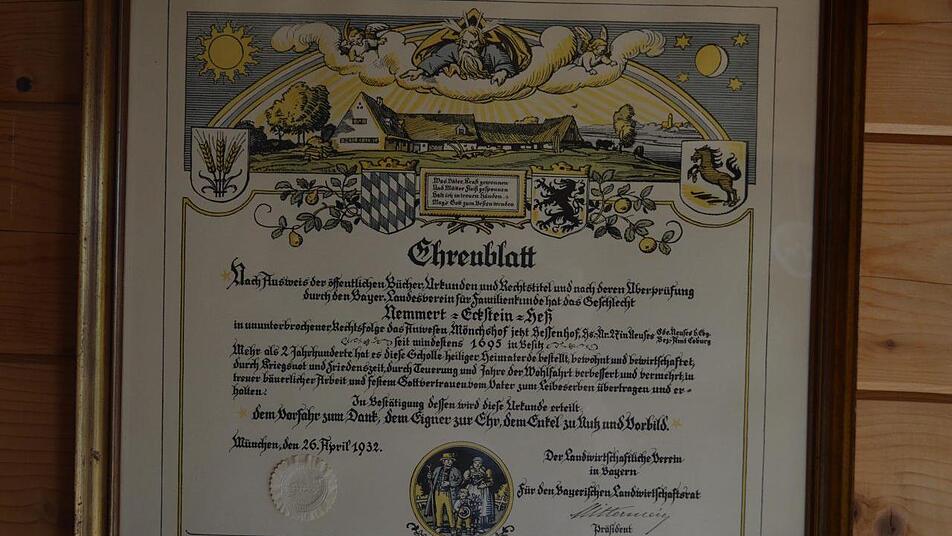 Was Väter Kraft gewonnen
Und Mütter Fleiß gesponnen
Halt ich in treuen Händen.
Mag's Gott zum Besten wenden
Ehrenblatt
Nach Ausweis der öffentlichen Bücher, Urkunden und Rechtstitel und nach deren Überprüfung
durch den Bayer. Landesverein für Familienkunde hat das Geschlecht
Nemmert = Eckstein = Heß
in ununterbrochener Rechtsfolge das Anwesen Mönchshof jetzt Hessenhof, Hs.Nr. 27 in Neuses
Gde. Neuses b. Cbg.
Bez.-Amt Coburg
seit mindestens 1695 in Besitz
Mehr als 2 Jahrhunderte hat es diese Scholle heiliger Heimaterde bestellt, bewohnt und bewirtschaftet,
durch Kriegsnot und Friedenszeit, durch Teuerung und Jahre der Wohlfahrt verbessert und vermehrt, in
treuer bäuerlicher Arbeit und festem Gottvertrauen vom Vater zum Leibeserben übertragen und er=
halten.
In Bestätigung dessen wird diese Urkunde erteilt
dem Vorfahr zum Dank, dem Eigner zur Ehr, dem Enkel zu Nutz und Vorbild.
München, den 26. April 1932.
Der Landwirtschaftliche Verein
in Bayern
Für den Bayerischen Landwirtschaftsrat
Präsident